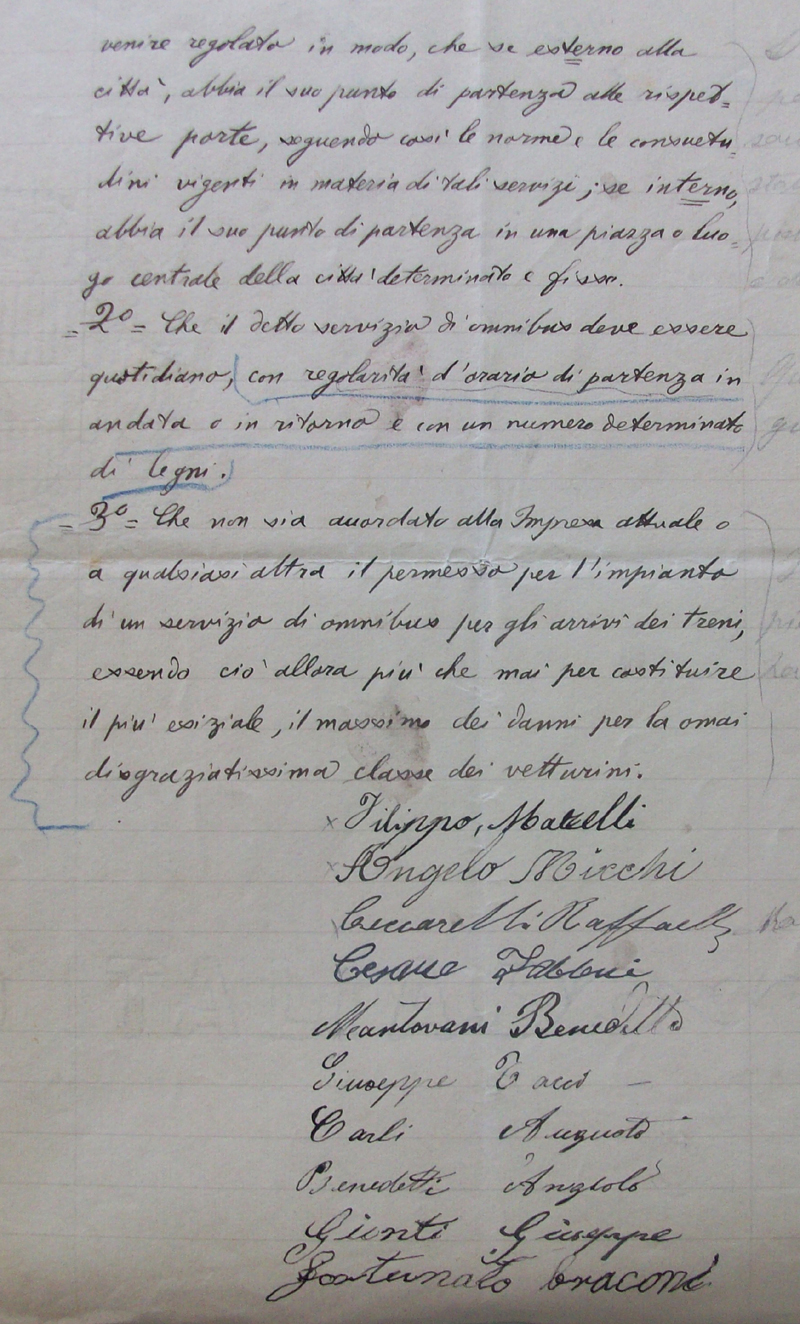 venire regolato in modo, che se esterno alla
città, abbia il suo punto di partenza alle rispet=
tive porte, seguendo così le norme e le consuetu=
dini vigenti in materia di tali servizi; se interno,
abbia il suo punto di partenza in una piazza o luo=
go centrale della città determinato e fisso.
= 2º = Che il detto servizio di omnibus deve essere
quotidiano, con regolarità d'orario di partenza in
andata o in ritorno e con un numero determinato
di legni.
= 3º = Che non sia accordato alla Impresa attuale o
a qualsiasi altra il permesso per l'impianto
di un servizio di omnibus per gli arrivi dei treni,
essendo ciò allora più che mai per costituire
il più esiziale, il massimo dei danni per la omai
disgraziatissima classe dei vetturini.
Filippo, Marelli
Angelo Micchi
Ceccarelli Raffaelle
Cesare
Mantovani Benedetto
Giuseppe Tacci
Carli Augusto
Benedetti Angiolo
Gionti Giuseppe
Fortunato Braconi